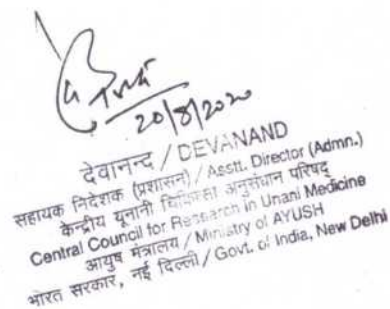 20/8/2020
देवानन्द / DEVANAND
सहायक निदेशक (प्रशासन) / Asstt. Director (Admn.)
केन्द्रीय यूनानी चिकित्सा अनुसंधान परिषद्
Central Council for Research in Unani Medicine
आयुष मंत्रालय / Ministry of AYUSH
भारत सरकार, नई दिल्ली / Govt. of India, New Delhi